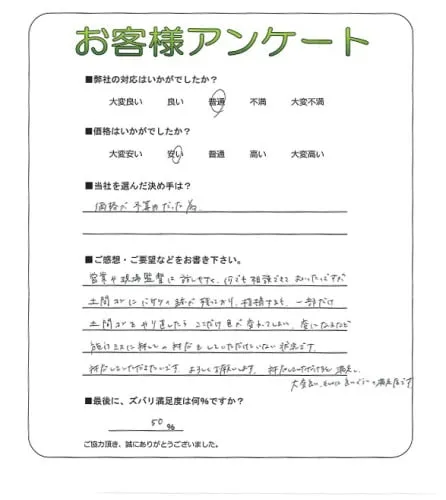 お客様アンケート
■弊社の対応はいかがでしたか?
大変良い 良い 普通 不満 大変不満
■価格はいかがでしたか?
大変安い 安い 普通 高い 大変高い
■当社を選んだ決め手は?
価格が予算内だった為
■ご感想・ご要望などをお書き下さい。
営業や現場監督に話しやすく、何でも相談できて
土間コンに 残っており、指摘すると、一部だけ
土間コンをやり直したら ここだけ色が変わってしまい、
施工ミスに対しての対応をしていただけていない状況です。
対応していただきたいです。よろしくお願いします。
■最後に、ズバリ満足度は何%ですか?
50 %
ご協力頂き、誠にありがとうございました。